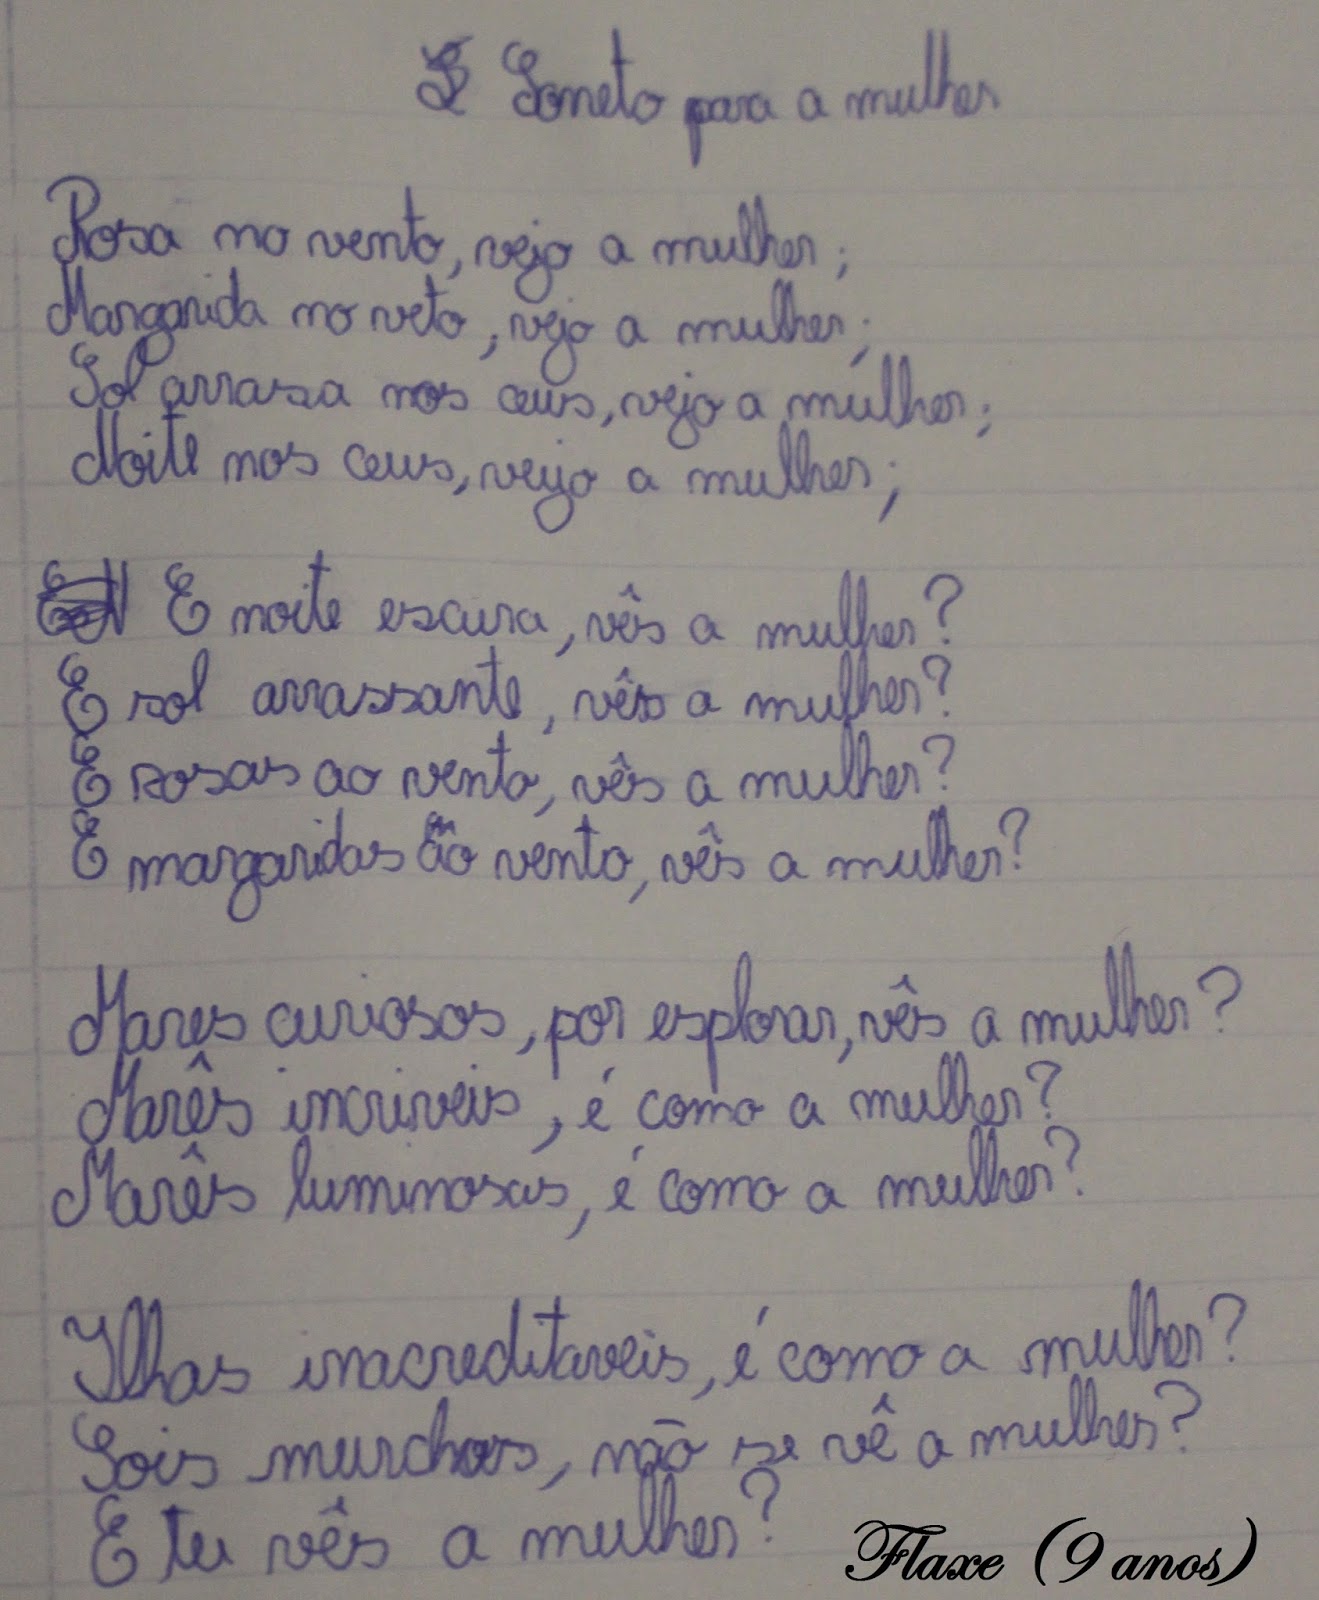 Soneto para a mulher
Rosa no vento, vejo a mulher;
Margarida no veto, vejo a mulher;
Sol arrasa nos ceus, vejo a mulher;
Noite nos ceus, vejo a mulher;
E noite escura, vês a mulher?
E sol arrassante, vês a mulher?
E rosas ao vento, vês a mulher?
E margaridas ao vento, vês a mulher?
Mares curiosos, por esplorar, vês a mulher?
Marês incriveis, é como a mulher?
Marês luminosas, é como a mulher?
Ilhas inacreditaveis, é como a mulher?
Sois murchos, não se vê a mulher?
E tu vês a mulher?
Flaxe (9 anos)